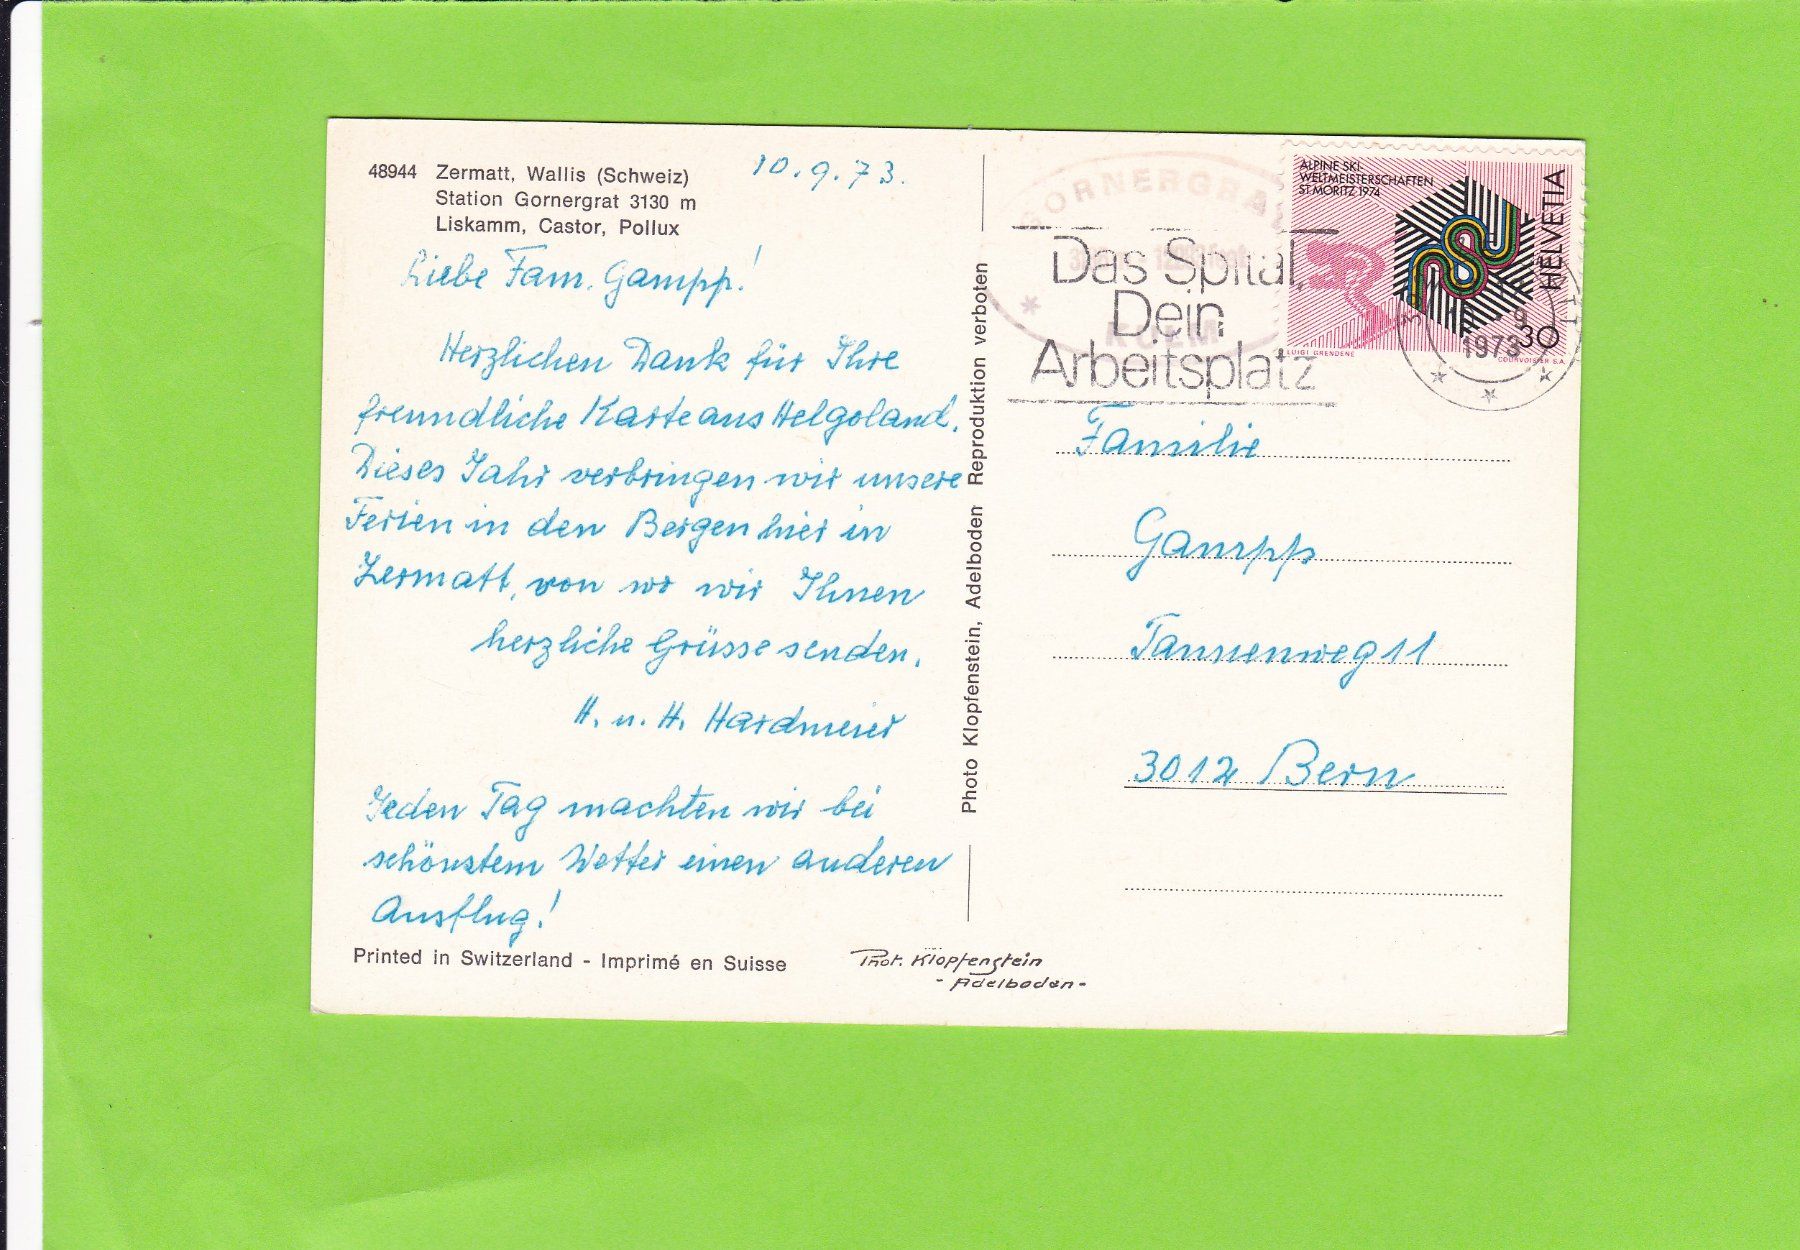 48944 Zermatt, Wallis (Schweiz)
Station Gornergrat 3130 m
Liskamm, Castor, Pollux
10.9.73.
Liebe Fam. Gampp!
Herzlichen Dank für Ihre
freundliche Karte aus Helgoland.
Dieses Jahr verbringen wir unsere
Ferien in den Bergen hier in
Zermatt, von wo wir Ihnen
herzliche Grüsse senden.
H. u. H. Hardmeier
Jeden Tag machten wir bei
schönstem Wetter einen anderen
Ausflug!
Printed in Switzerland - Imprimé en Suisse
Phot. Klopfenstein
- Adelboden -
Photo Klopfenstein, Adelboden Reproduktion verboten
GORNERGRAT
KULM
Das Spital,
Dein
Arbeitsplatz
ALPINE SKI-
WELTMEISTERSCHAFTEN
ST. MORITZ 1974
HELVETIA
30
LUIGI GRENDENE
COURVOISIER S.A.
1973
Familie
Gampp
Tannenweg 11
3012 Bern